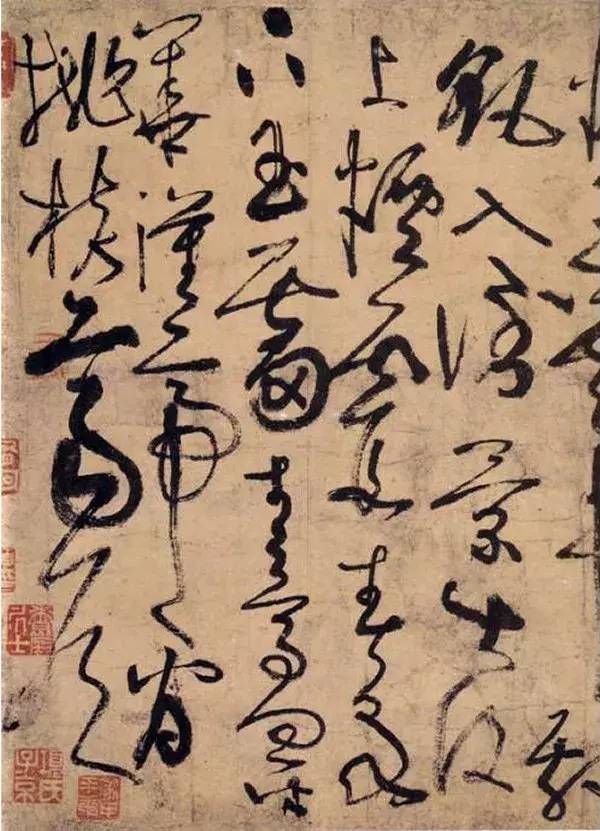 飄
飖入倒景出没
上煙霞春泉
下玉霤青鳥向金
華漢帝看
桃核齊侯問